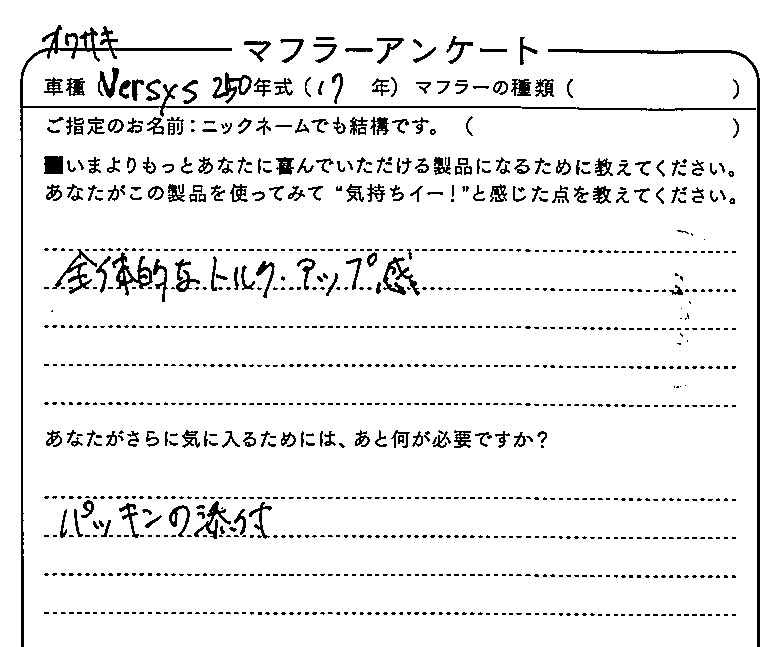 オワサキ
マフラーアンケート
車種 Versys 250 年式（'17 年）マフラーの種類（ ）
ご指定のお名前：ニックネームでも結構です。（ ）
■いまよりもっとあなたに喜んでいただける製品になるために教えてください。
あなたがこの製品を使ってみて“気持ちイー！”と感じた点を教えてください。
全体的なトルク・アップ感
あなたがさらに気に入るためには、あと何が必要ですか？
パッキンの添付